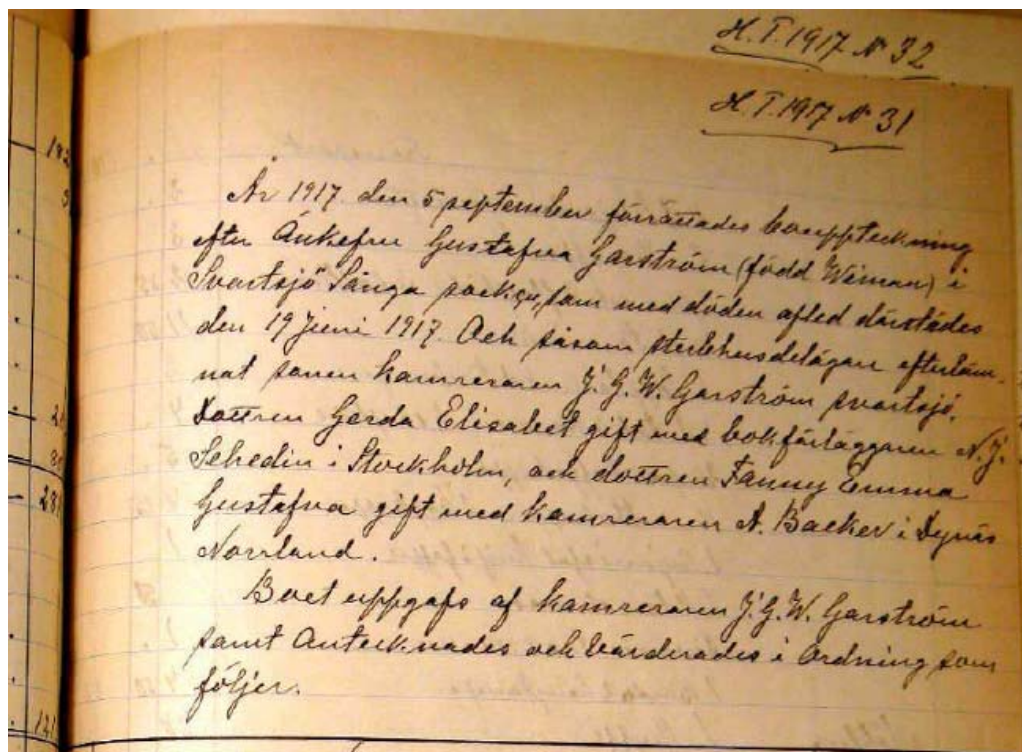 H.T. 1917 № 32
H.T. 1917 № 31
År 1917 den 5 september förrättades bouppteckning
efter Änkefru Gustafva Garström (född Wiman) i
Svartsjö Sånga socken, som med döden afled därstädes
den 19 Juni 1917. Och såsom sterbhusdelägare efterläm-
nat sonen kamreraren J.G.W. Garström svartsjö.
Dottren Gerda Elisabet gift med bokförläggaren N.J.
Schedin i Stockholm, och dottren Fanny Emma
Gustafva gift med kamreraren A. Backer i Dynäs
Norrland.
Boet uppgafs af kamreraren J.G.W. Garström
samt Antecknades och värderades i Ordning som
följer.